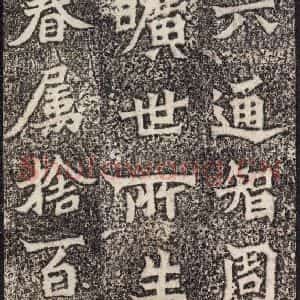 六通智周
曠世所生
眷属捨百